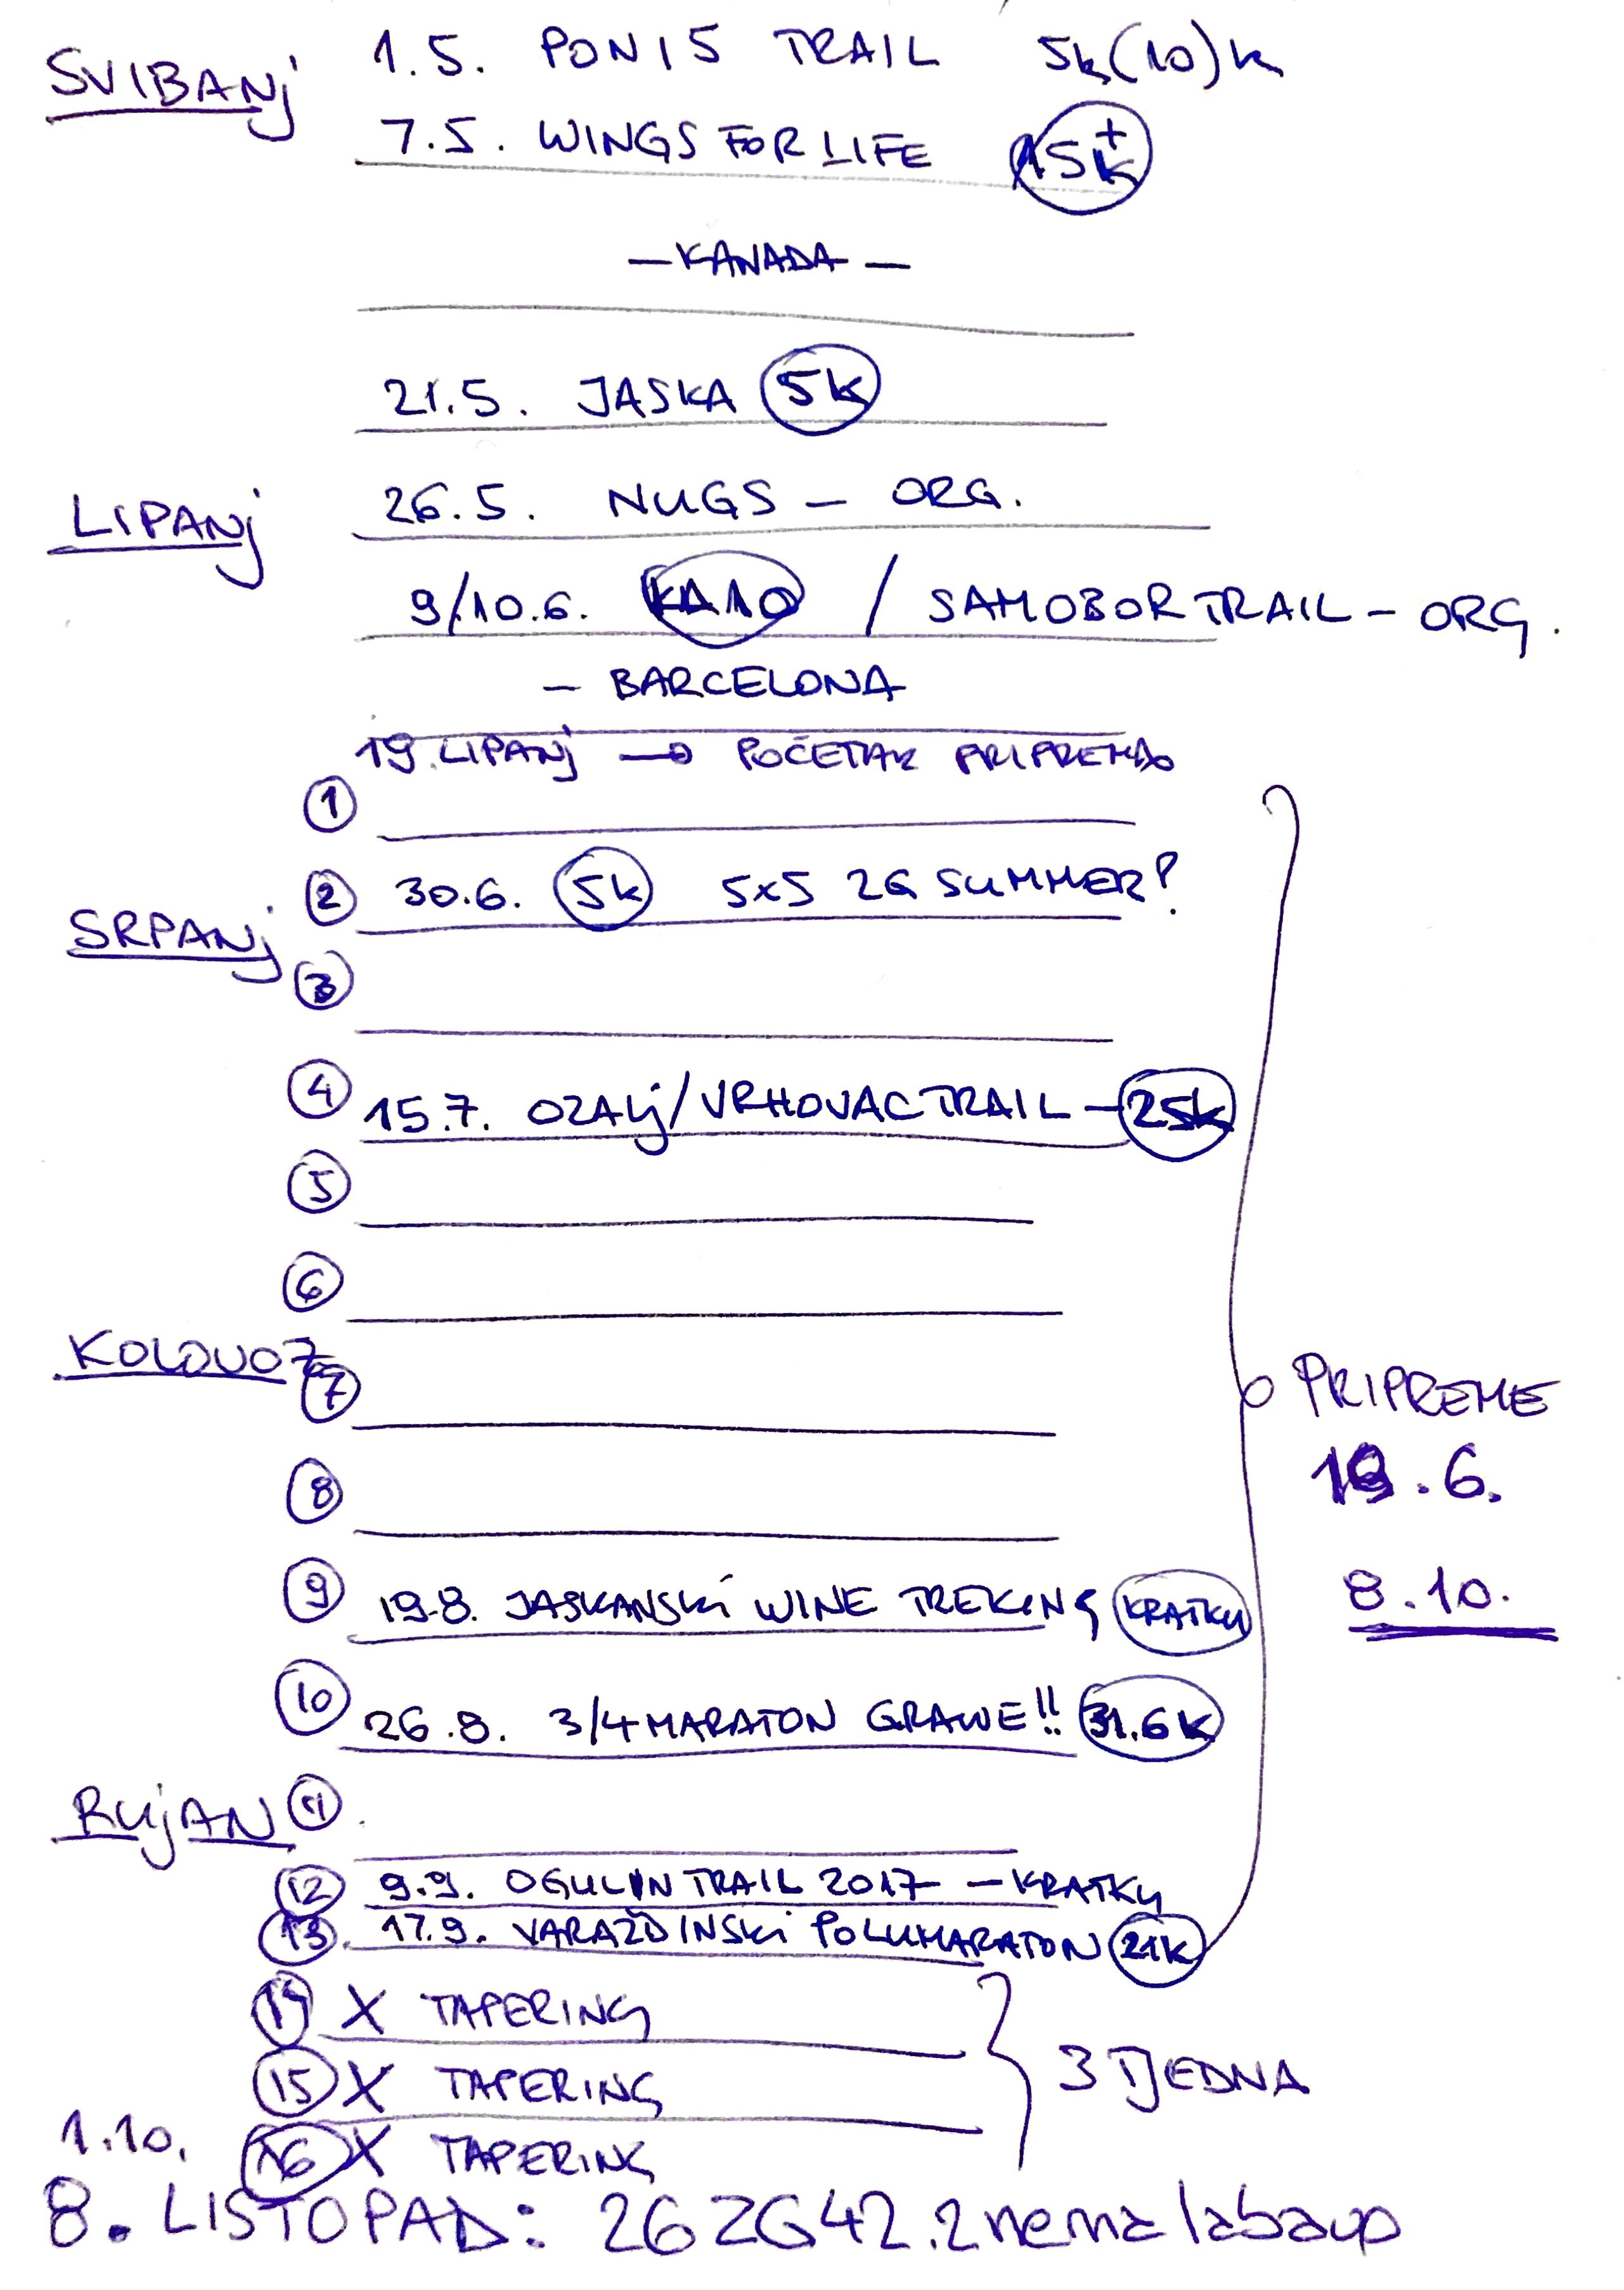 SVIBANj 1.5. PONIS TRAIL 5k(10)k
7.5. WINGS FOR LIFE 15k+
— KANADA —
21.5. JASKA 5k
LIPANj 26.5. NUGS — ORG.
9/10.6. KA10 / SAMOBOR TRAIL — ORG.
— BARCELONA
19. LIPANj → POČETAK PRIPREMA
1
2 30.6. 5k 5x5 ZG SUMMER?
SRPANj
3
4 15.7. OZALj/VRHOVAC TRAIL — 25k
5
6
KOLOVOZ
7
PRIPREME
19.6.
8
8.10.
9 19.8. JASKANSKI WINE TREKING KRATKI
10 26.8. 3/4 MARATON GRAWE!! 31.6k
RUjAN 11.
12 9.9. OGULIN TRAIL 2017 — KRATKI
13. 17.9. VARAŽDINSKI POLUMARATON 21k
14 X TAPERING
15 X TAPERING
3 TJEDNA
1.10. 16 X TAPERING
8. LISTOPAD: 26 ZG 42.2 nema labavo